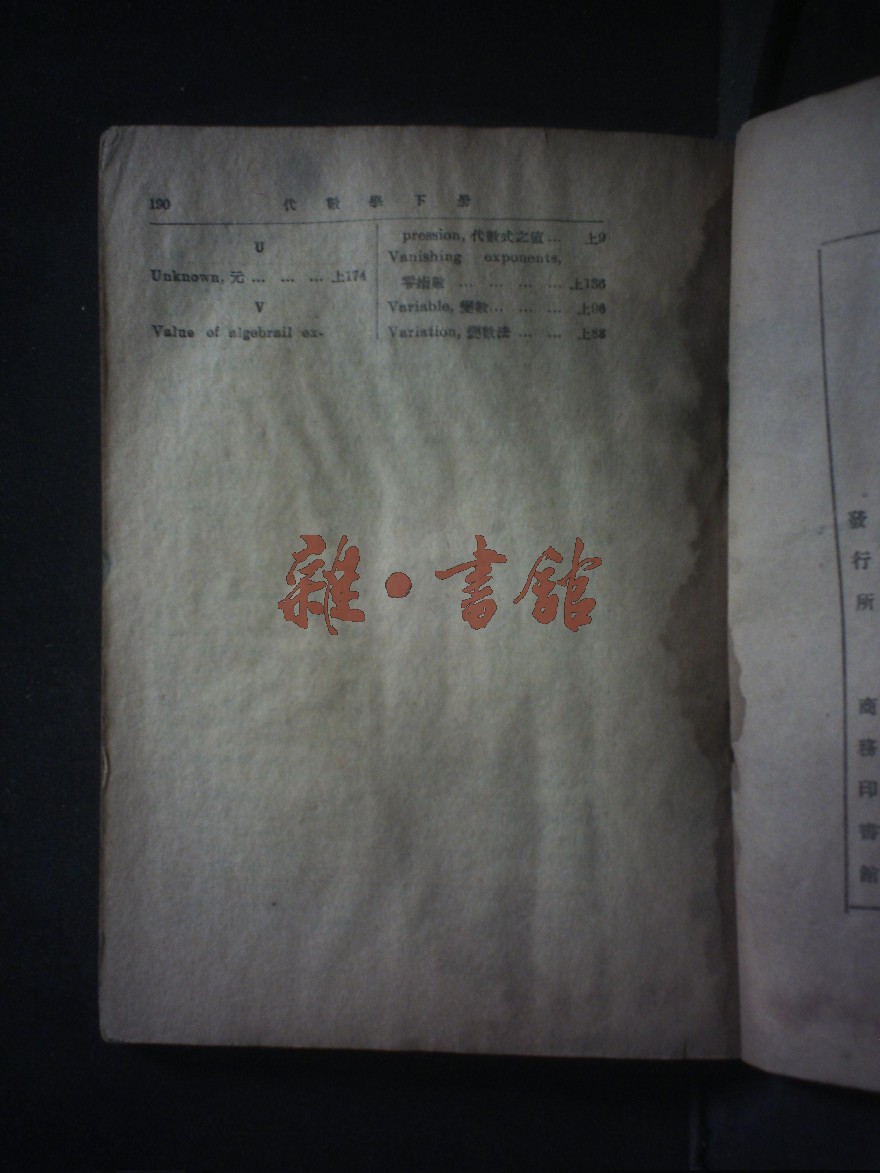 190 代數學下册
U
Unknown, 元 ... ... ... 上174
V
Value of algebrail ex-
pression, 代數式之值 ... 上9
Vanishing exponents,
零指數 ... ... ... ... 上136
Variable, 變數... ... ... 上96
Variation, 變數法 ... ... 上88
雜·書館
發行所 商務印書館